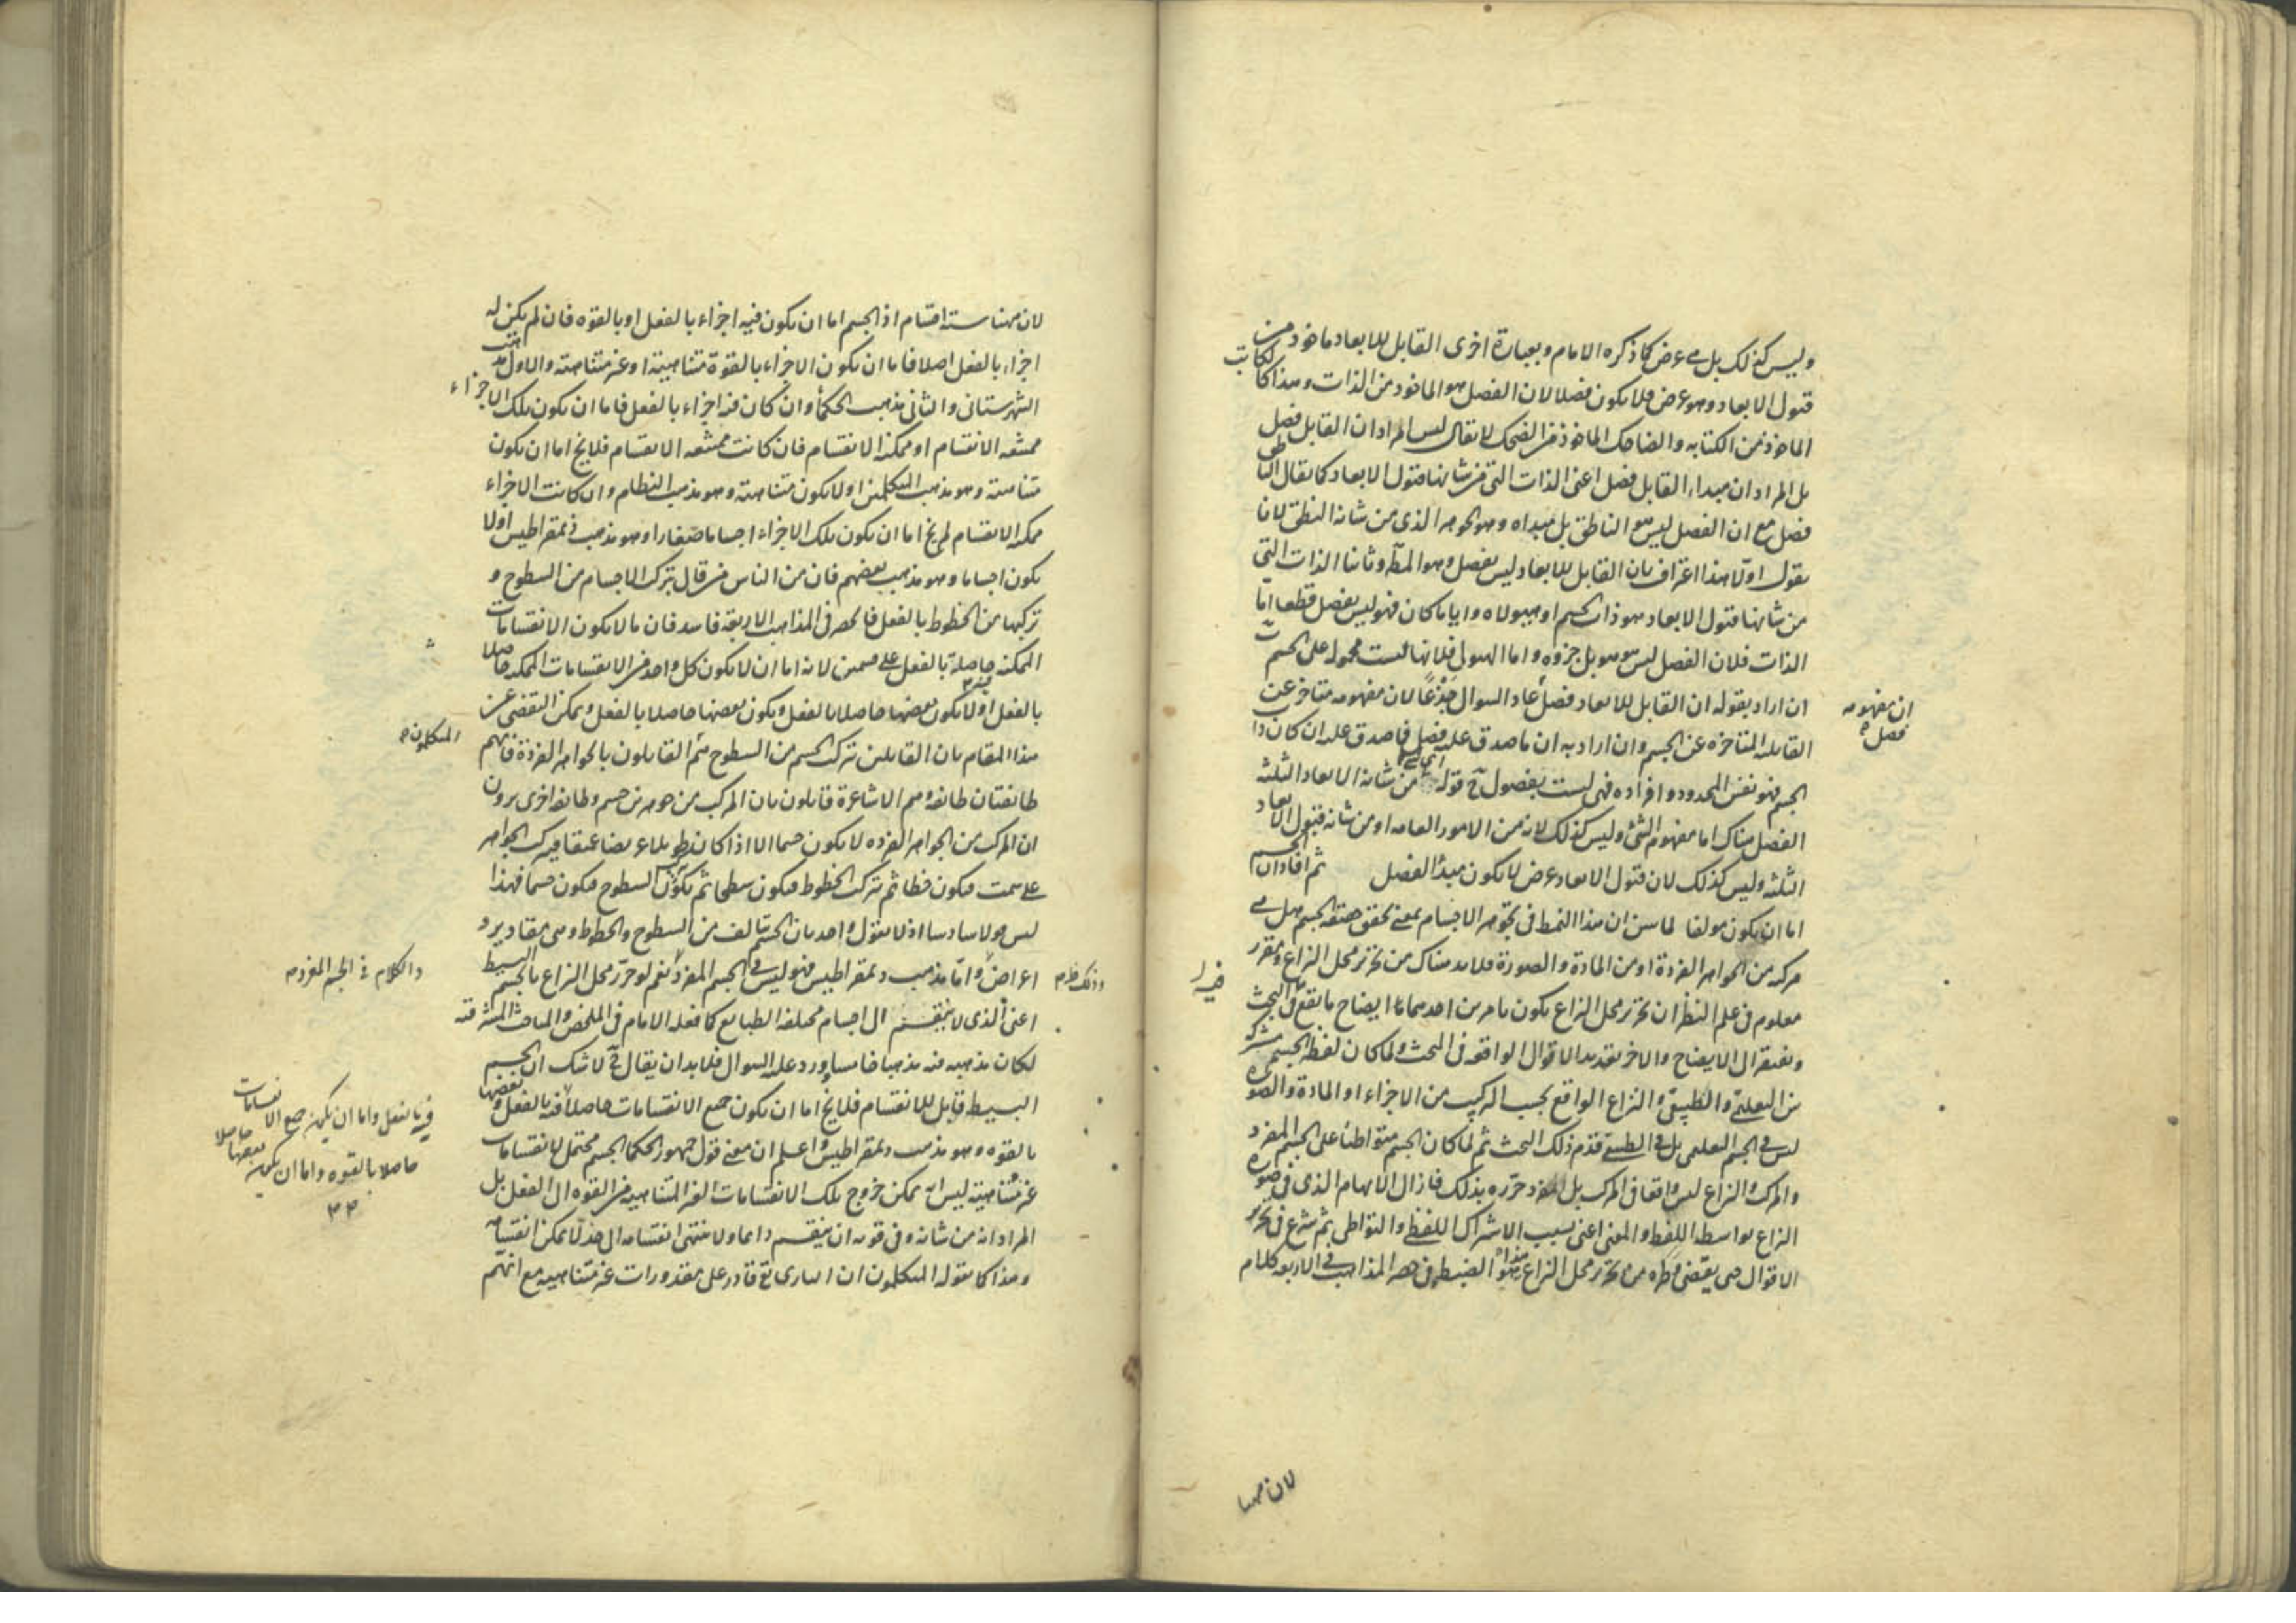 وليس كذلك بل هى عرض كما ذكره الامام وبعبارة اخرى القابل للابعاد ماخوذ من
قبول الابعاد وهو عرض فلا يكون فصلا لان الفصل هو الماخوذ من الذات وهذا كالكاتب
الماخوذ من الكتابه والضاحك الماخوذ من الضحك لا يقال ليس المراد ان القابل فصل
بل المراد ان مبداء القابل فصل اعنى الذات التى من شانها قبول الابعاد كما يقال الناطق
فصل مع ان الفصل ليس هو الناطق بل مبداه وهو الجوهر الذى من شانه النطق لانا
نقول اولا هذا اعتراف بان القابل للابعاد ليس بفصل وهو المط وثانيا الذات التى
من شانها قبول الابعاد هو ذات الجسم او هيولاه وايا ما كان فهو ليس بفصل قطعا اما
الذات فلان الفصل ليس هو هو بل جزوه واما الهيولى فلانها ليست محموله على الجسم
ان اراد بقوله ان القابل للابعاد فصل عاد السوال جذعا لان مفهومه متاخر عن
ان مفهومه
فصل
القابله المتاخره عن الجسم وان اراد به ان ما صدق عليه فصل فما صدق عليه ان كان ذا
الجسم فهو نفس المحدود وافراده فهى ليست بفصول قوله من شانه الابعاد الثلثه
الفصل هناك اما مفهوم الشئ وليس كذلك لانه من الامور العامه او من شانه قبول الابعاد
الثلثه وليس كذلك لان قبول الابعاد عرض لا يكون مبدأ الفصل ثم افاد ان الجسم
اما ان يكون مولفا لما بين ان هذا النمط فى تجوهر الاجسام بمعنى تحقق حقيقه الجسم هل هى
مركبه من الجواهر الفردة او من المادة والصورة فلا بد هناك من تحرير محل النزاع وتقرر
معلوم فى علم النظر ان تحرير محل النزاع يكون بامرين احدهما ايضاح ما يقع فى البحث
ويفتقر الى الايضاح والاخر تعديد الاقوال الواقعه فى البحث ولما كان لفظ الجسم مشتركا
بين التعليمى والطبيعى والنزاع الواقع بحسب التركيب من الاجزاء او المادة والصورة
ليس فى الجسم التعليمى بل فى الطبيعى قدم ذلك البحث ثم لما كان الجسم متواطئا على الجسم المفرد
والمركب والنزاع ليس واقعا فى المركب بل المفرد حرره بذلك فازال الابهام الذى فى صورة
النزاع بواسطه اللفظ والمعنى اعنى بسبب الاشتراك اللفظى والتواطى ثم شرع فى تحرير
الاقوال حتى يقضى وطره من تحرير محل النزاع هذا هو الضبط وفى حصر المذاهب فى الاربعه كلام
لان ههنا
لان ههنا سته اقسام اذ الجسم اما ان يكون فيه اجزاء بالفعل او بالقوه فان لم يكن له
اجزاء بالفعل اصلا فاما ان يكون الاجزاء بالقوة متناهية او غير متناهيه والاول مذهب
الشهرستانى والثانى مذهب الحكماء وان كان فيه اجزاء بالفعل فاما ان يكون تلك الاجزاء
ممتنعه الانقسام او ممكنه الانقسام فان كانت ممتنعه الانقسام فلا يخ اما ان يكون
متناهيه وهو مذهب المتكلمين او لا يكون متناهيه وهو مذهب النظام وان كانت الاجزاء
ممكنه الانقسام لم يخ اما ان يكون تلك الاجزاء اجساما صغارا وهو مذهب ذيمقراطيس او لا
يكون اجساما وهو مذهب بعضهم فان من الناس من قال بتركب الاجسام من السطوح و
تركبها من الخطوط بالفعل فالحصر فى المذاهب الاربعة فاسد فان ما لا يكون الانقسامات
الممكنه حاصلة بالفعل على قسمين لانه اما ان لا يكون كل واحد من الانقسامات الممكنه حاصلا
بالفعل او لا يكون بعضها حاصلا بالفعل ويكون بعضها حاصلا بالفعل ويمكن التفصى عن
هذا المقام بان القايلين بتركب الجسم من السطوح هم القايلون بالجواهر الفردة فانهم
المتكلمون
طايفتان طايفه وهم الاشاعرة قايلون بان المركب من جوهرين جسم وطايفه اخرى يرون
ان المركب من الجواهر الفرده لا يكون جسما الا اذا كان طويلا عريضا عميقا فيتركب الجواهر
على سمت فيكون خطا ثم تتركب الخطوط فيكون سطحا ثم يتركب السطوح فيكون جسما فهذا
ليس قولا سادسا اذ لا يقول واحد بان الجسم يتالف من السطوح والخطوط وهى مقادير و
اعراض واما مذهب ديمقراطيس فهو ليس فى الجسم المفرد نعم لو حرر محل النزاع بالجسم البسيط
والكلام فى الجسم المفرد
اعنى الذى لا ينقسم الى اجسام مختلفه الطبايع كما فعله الامام فى الملخص والمباحث المشرقيه
لكان مذهبه فيه مذهبا خامسا وورد عليه السوال فلا بد ان يقال لا شك ان الجسم
البسيط قابل للانقسام فلا يخ اما ان يكون جميع الانقسامات حاصلا فيه بالفعل وبعضها
فيه بالفعل واما ان يكون جميع الانقسامات
حاصلا بالقوه واما ان يكون بعضها حاصلا
بالقوه وهو مذهب ديمقراطيس واعلم ان معنى قول جمهور الحكماء الجسم محتمل لانقسامات
غير متناهية ليس انه يمكن خروج تلك الانقسامات الغير المتناهيه من القوه الى الفعل بل
المراد انه من شانه وفى قوته ان ينقسم دايما ولا ينتهى انقسامه الى حد لا يمكن انقسامه
وهذا كما يقوله المتكلمون ان البارى تع قادر على مقدورات غير متناهيه مع انهم